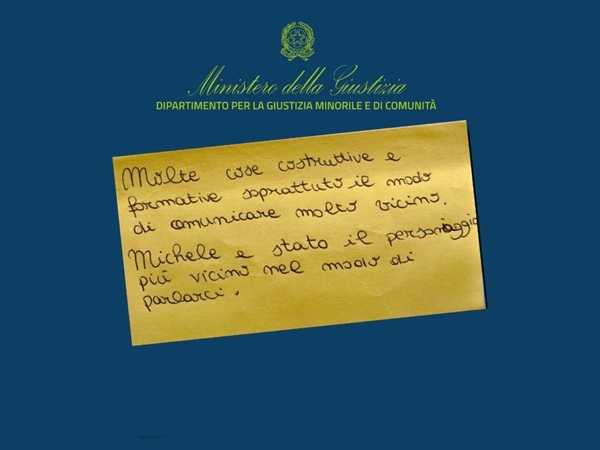 Ministero della Giustizia
DIPARTIMENTO PER LA GIUSTIZIA MINORILE E DI COMUNITÀ
Molte cose costruttive e
formative soprattuto il modo
di comunicare molto vicino.
Michele e stato il personaggio
più vicino nel modo di
parlarci.